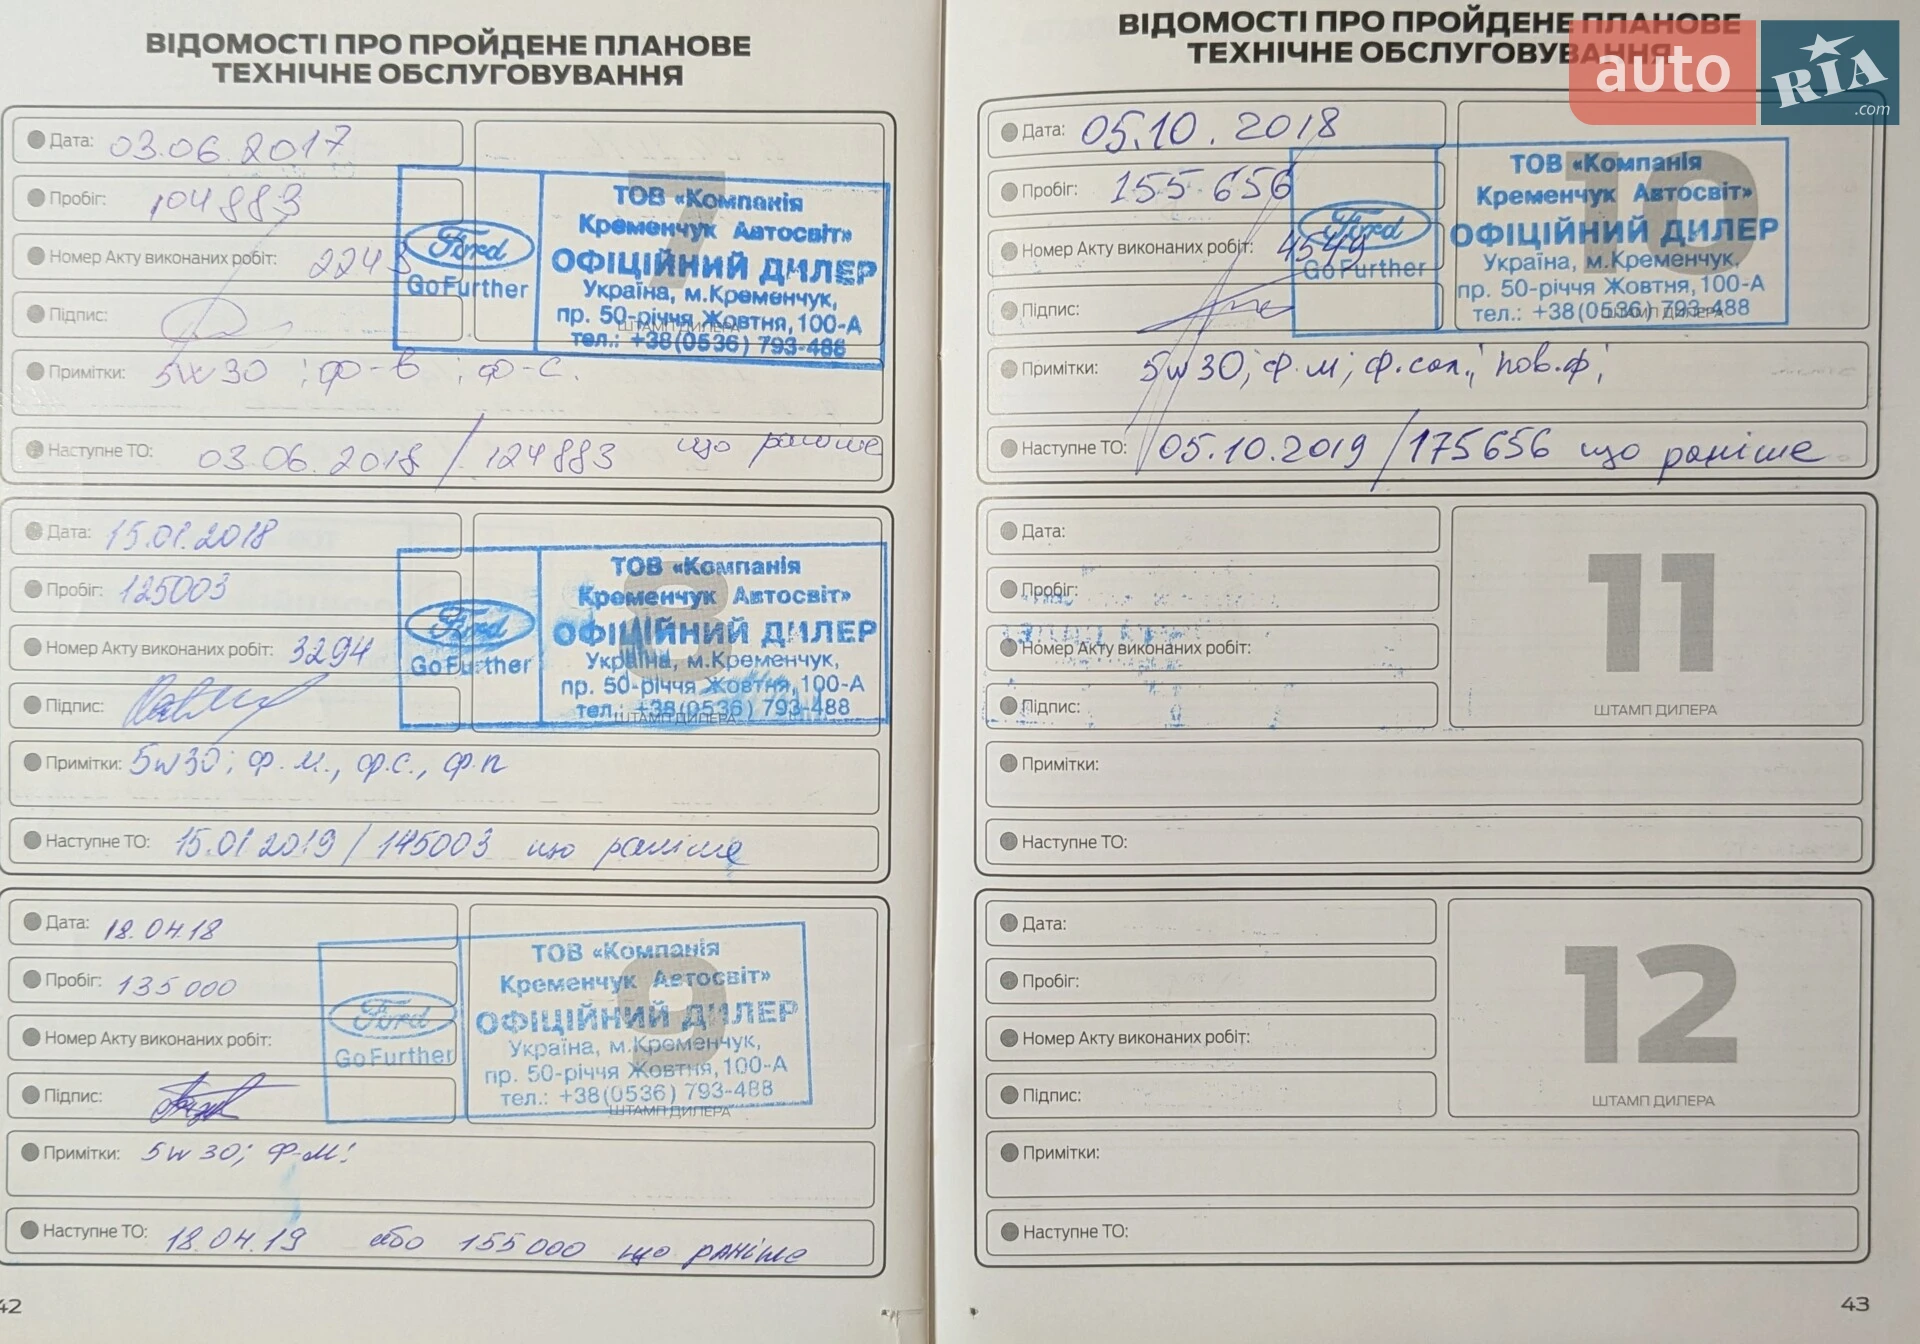 ВІДОМОСТІ ПРО ПРОЙДЕНЕ ПЛАНОВЕ
ТЕХНІЧНЕ ОБСЛУГОВУВАННЯ
Дата: 03.06.2017
Пробіг: 104883
Номер Акту виконаних робіт: 2243
Підпис:
7
ТОВ «Компанія
Кременчук Автосвіт»
ОФІЦІЙНИЙ ДИЛЕР
Україна, м.Кременчук,
пр. 50-річчя Жовтня, 100-А
тел.: +38(0536) 793-488
ШТАМП ДИЛЕРА
Ford
Go Further
Примітки: 5w30 ; ф-в ; ф-с.
Наступне ТО: 03.06.2018 / 124883 що раніше
Дата: 15.01.2018
Пробіг: 125003
Номер Акту виконаних робіт: 3294
Підпис:
8
ТОВ «Компанія
Кременчук Автосвіт»
ОФІЦІЙНИЙ ДИЛЕР
Україна, м.Кременчук,
пр. 50-річчя Жовтня, 100-А
тел.: +38(0536) 793-488
ШТАМП ДИЛЕРА
Ford
Go Further
Примітки: 5w30; ф.м., ф.с., ф.п
Наступне ТО: 15.01 2019 / 145003 що раніше
Дата: 18.04.18
Пробіг: 135000
Номер Акту виконаних робіт:
Підпис:
9
ТОВ «Компанія
Кременчук Автосвіт»
ОФІЦІЙНИЙ ДИЛЕР
Україна, м.Кременчук,
пр. 50-річчя Жовтня, 100-А
тел.: +38(0536) 793-488
ШТАМП ДИЛЕРА
Ford
Go Further
Примітки: 5w30; ф-м;
Наступне ТО: 18.04.19 або 155000 що раніше
42
ВІДОМОСТІ ПРО ПРОЙДЕНЕ ПЛАНОВЕ
ТЕХНІЧНЕ ОБСЛУГОВУВАННЯ
auto RIA .com
Дата: 05.10.2018
Пробіг: 155656
Номер Акту виконаних робіт: 4549
Підпис:
10
ТОВ «Компанія
Кременчук Автосвіт»
ОФІЦІЙНИЙ ДИЛЕР
Україна, м.Кременчук,
пр. 50-річчя Жовтня, 100-А
тел.: +38(0536) 793-488
ШТАМП ДИЛЕРА
Ford
Go Further
Примітки: 5w30; ф.м; ф.сал.; пов.ф;
Наступне ТО: 05.10.2019 / 175656 що раніше
Дата:
Пробіг:
Номер Акту виконаних робіт:
Підпис:
11
ШТАМП ДИЛЕРА
Примітки:
Наступне ТО:
Дата:
Пробіг:
Номер Акту виконаних робіт:
Підпис:
12
ШТАМП ДИЛЕРА
Примітки:
Наступне ТО:
43